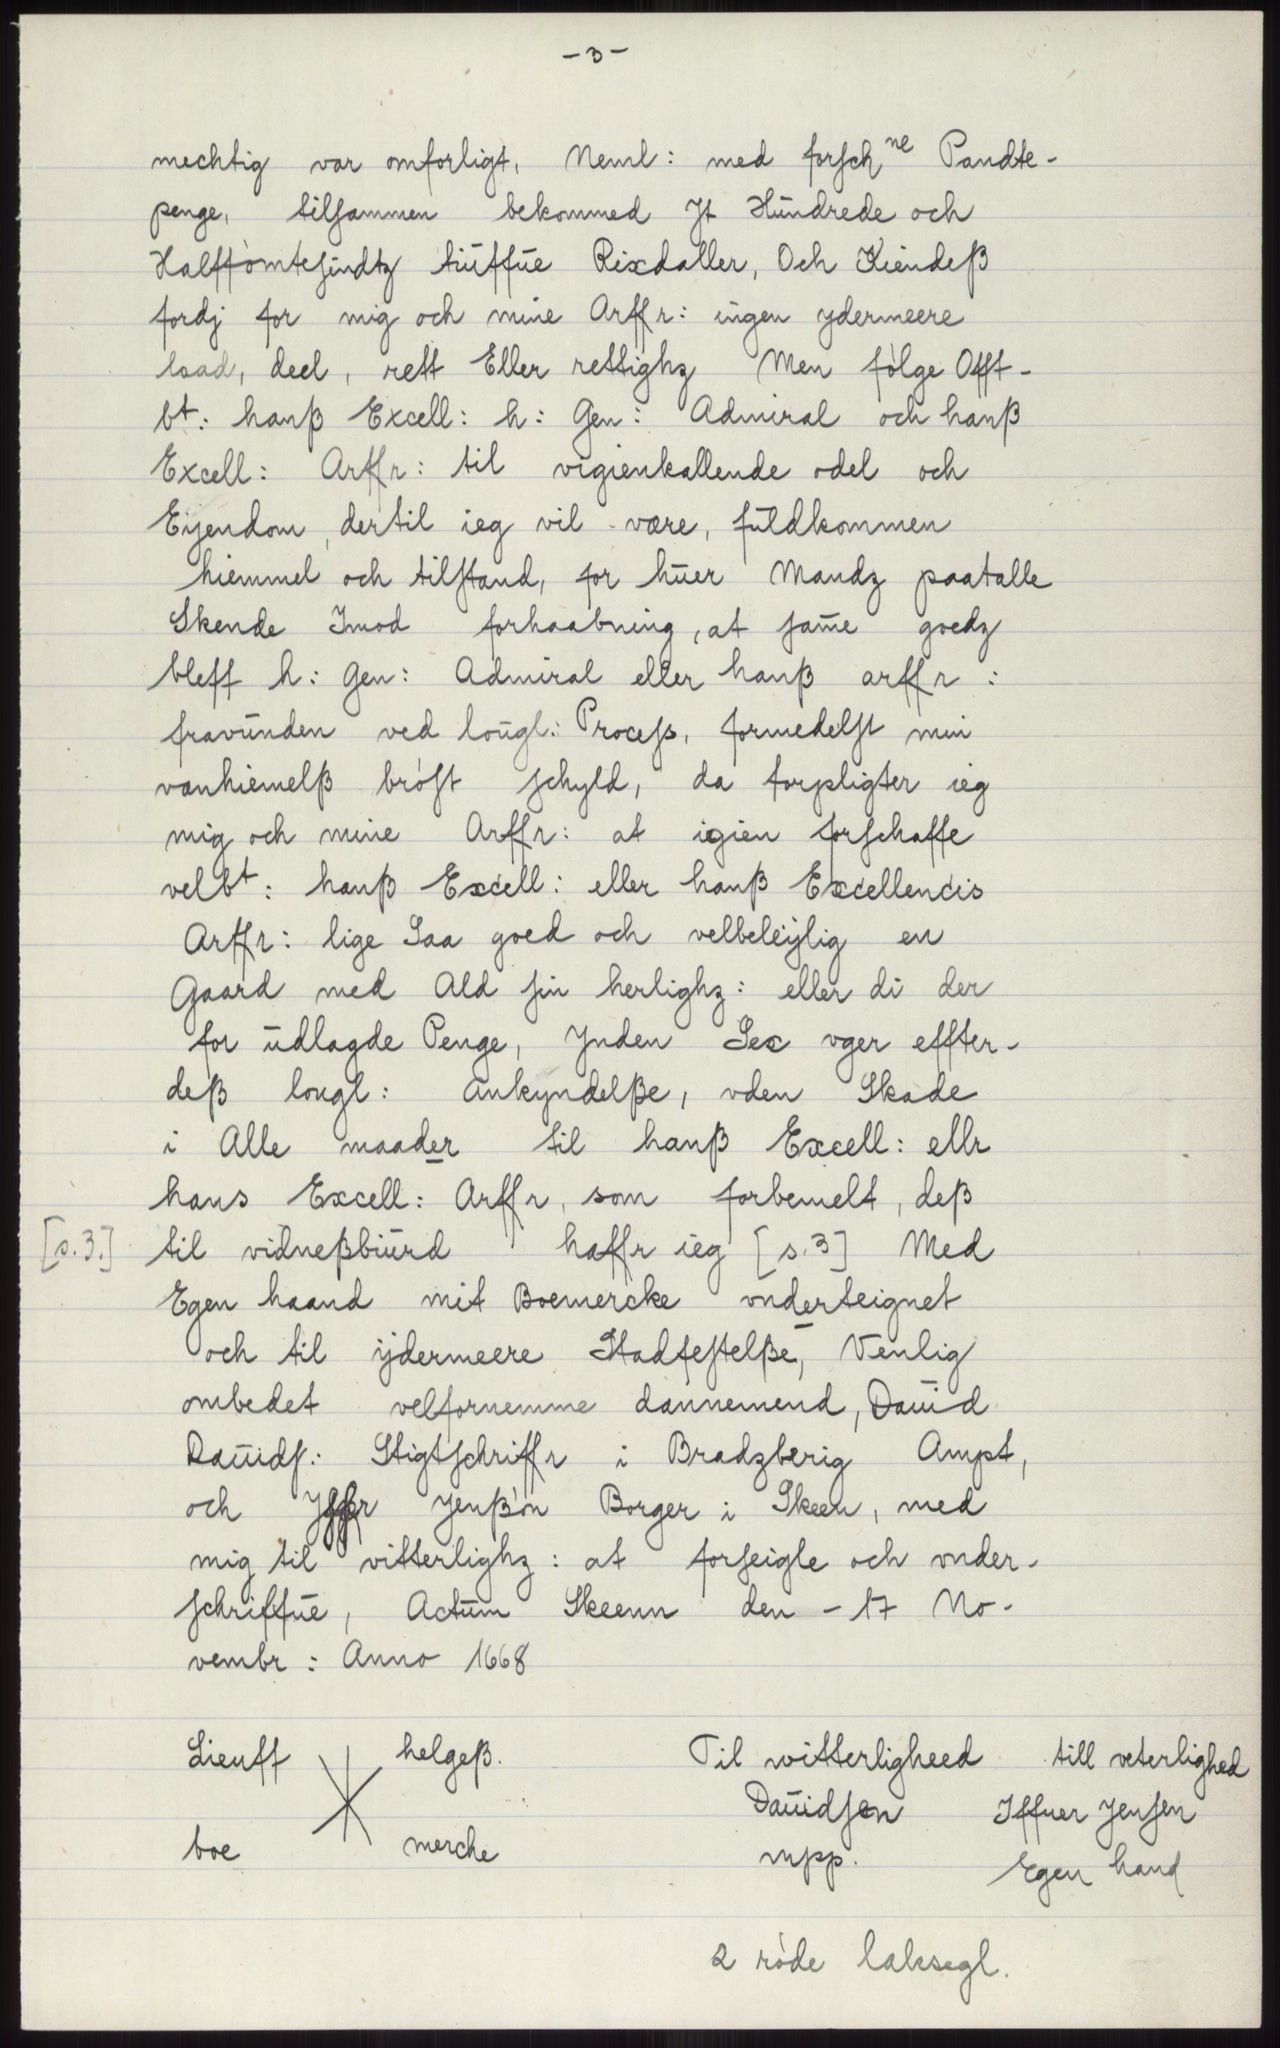 - 3 -
mechtig var omforligt, Neml: med forsch^ne Pandte-
penge, tilsammen bekommed Jt Hündrede och
Halffòmtesindtz tüffüe Rixdaller, Och Kiendeß
fordj for mig och mine Arffr: ingen ydermeere
laad, deel, rett Eller rettighz Men følge Offt-
bt: hanß Excell: h: Gen: Admiral och hanß
Excell: Arffr: til vigienkallende odel och
Eyendom, dertil ieg vil være, füldkommen
hiemmel och tilstand, for hüer Mandz paatalle
Skende Imod forhaabning, at same goedz
bleff h: Gen: Admiral eller hanß arffr:
fravünden ved loügl: Process, formedelst min
vanhiemelß bròst schyld, da forpligter ieg
mig och mine Arffr: at igien forschaffe
velbt: hanß Excell: eller hanß Excellencis
Arffr: lige Saa goed och velbeleÿlig en
Gaard med Ald sin herlighz: eller di der
for üdlagde Penge, Jnden Sex vger effter-
deß lougl: ankyndelße, vden Skade
i Alle maader til hanß Excell: ellr
hans Excell: Arffr, som forbemelt, deß
[s.3.] til vidneßbiürd haffr ieg [s.3] Med
Egen haand mit Boemercke vnderteignet
och til ÿdermeere Stadfestelße, Venlig
ombedet velfornemme dannemend, Dauid
Dauids: Stigtschriffr i Bradzberig Ampt,
och Jffr Jenßòn Borger i Skeen, med
mig til vitterlighz: at forseigle och vnder-
schriffüe, Actüm Skeenn den - 17 No-
vembr: Anno 1668
Lieuff helgeß. Til witterligheed till veterlighed
Daüidsen Iffuer Jensen
boe merche mpp. Egen hand
2 ròde laksegl.